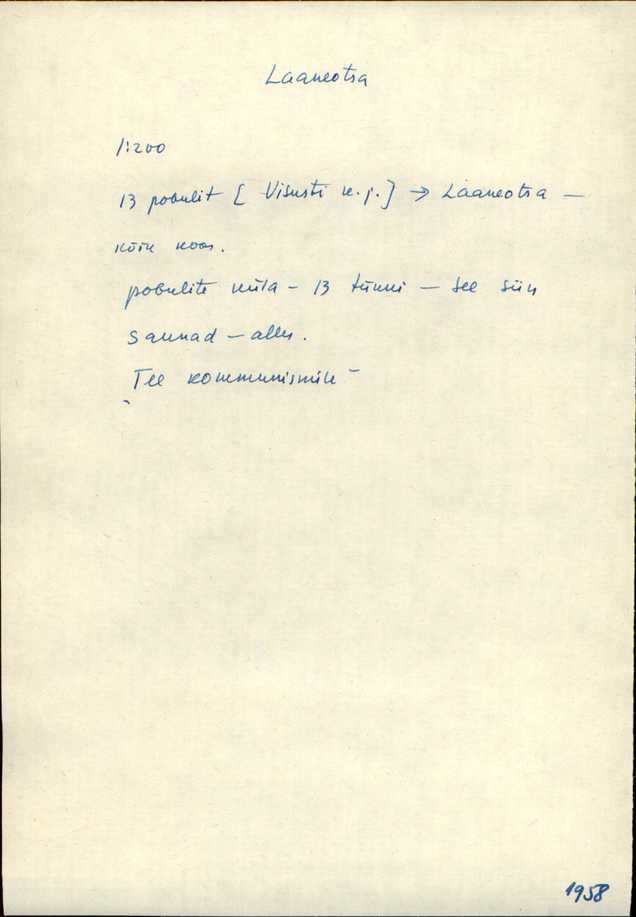 Laaneotsa
1:200
13 pobulit [ Visusti k. j. ] → Laaneotsa —
kõik koos.
pobulite küla – 13 tünni – see siin
saunad – alles.
"Tee kommunismile"
1958